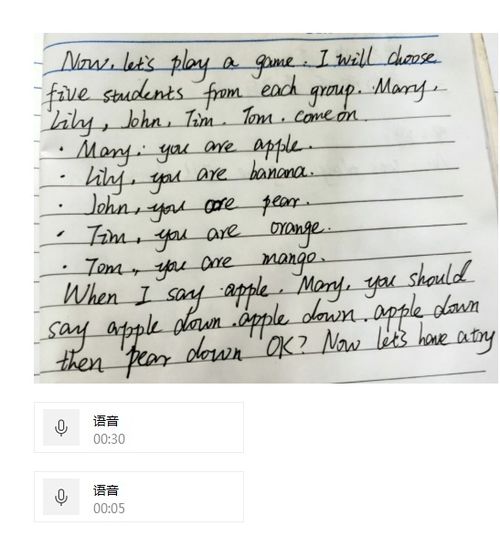 Now, let's play a game. I will choose
five students from each group. Mary,
Lily, John, Tim. Tom. come on.
· Mary. you are apple.
· Lily, you are banana.
· John, you are pear.
· Tim, you are orange.
· Tom, you are mango.
When I say apple. Mary, you should
say apple down. apple down. apple down
then pear down OK? Now let's have a try
语音
00:30
语音
00:05